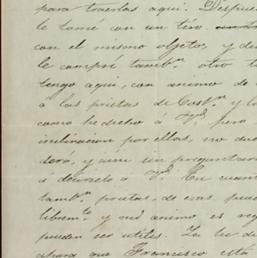 para traerlos aqui. Despues
le tomé con un tiro
con el mismo objeto, y de
le compré tambⁿ. otro t
tengo aqui, con animo de
á las prietas de Cost y l
como he dicho á Vd, pero
inclinacion por ellas, no du
dará, y aun sin preguntar
á decirselo á Vd. En cuan
tambⁿ. prietas, de esas pue
libremᵗᵉ. y mi animo es re
pueden ser utiles. La he d
ahora que Francisco está